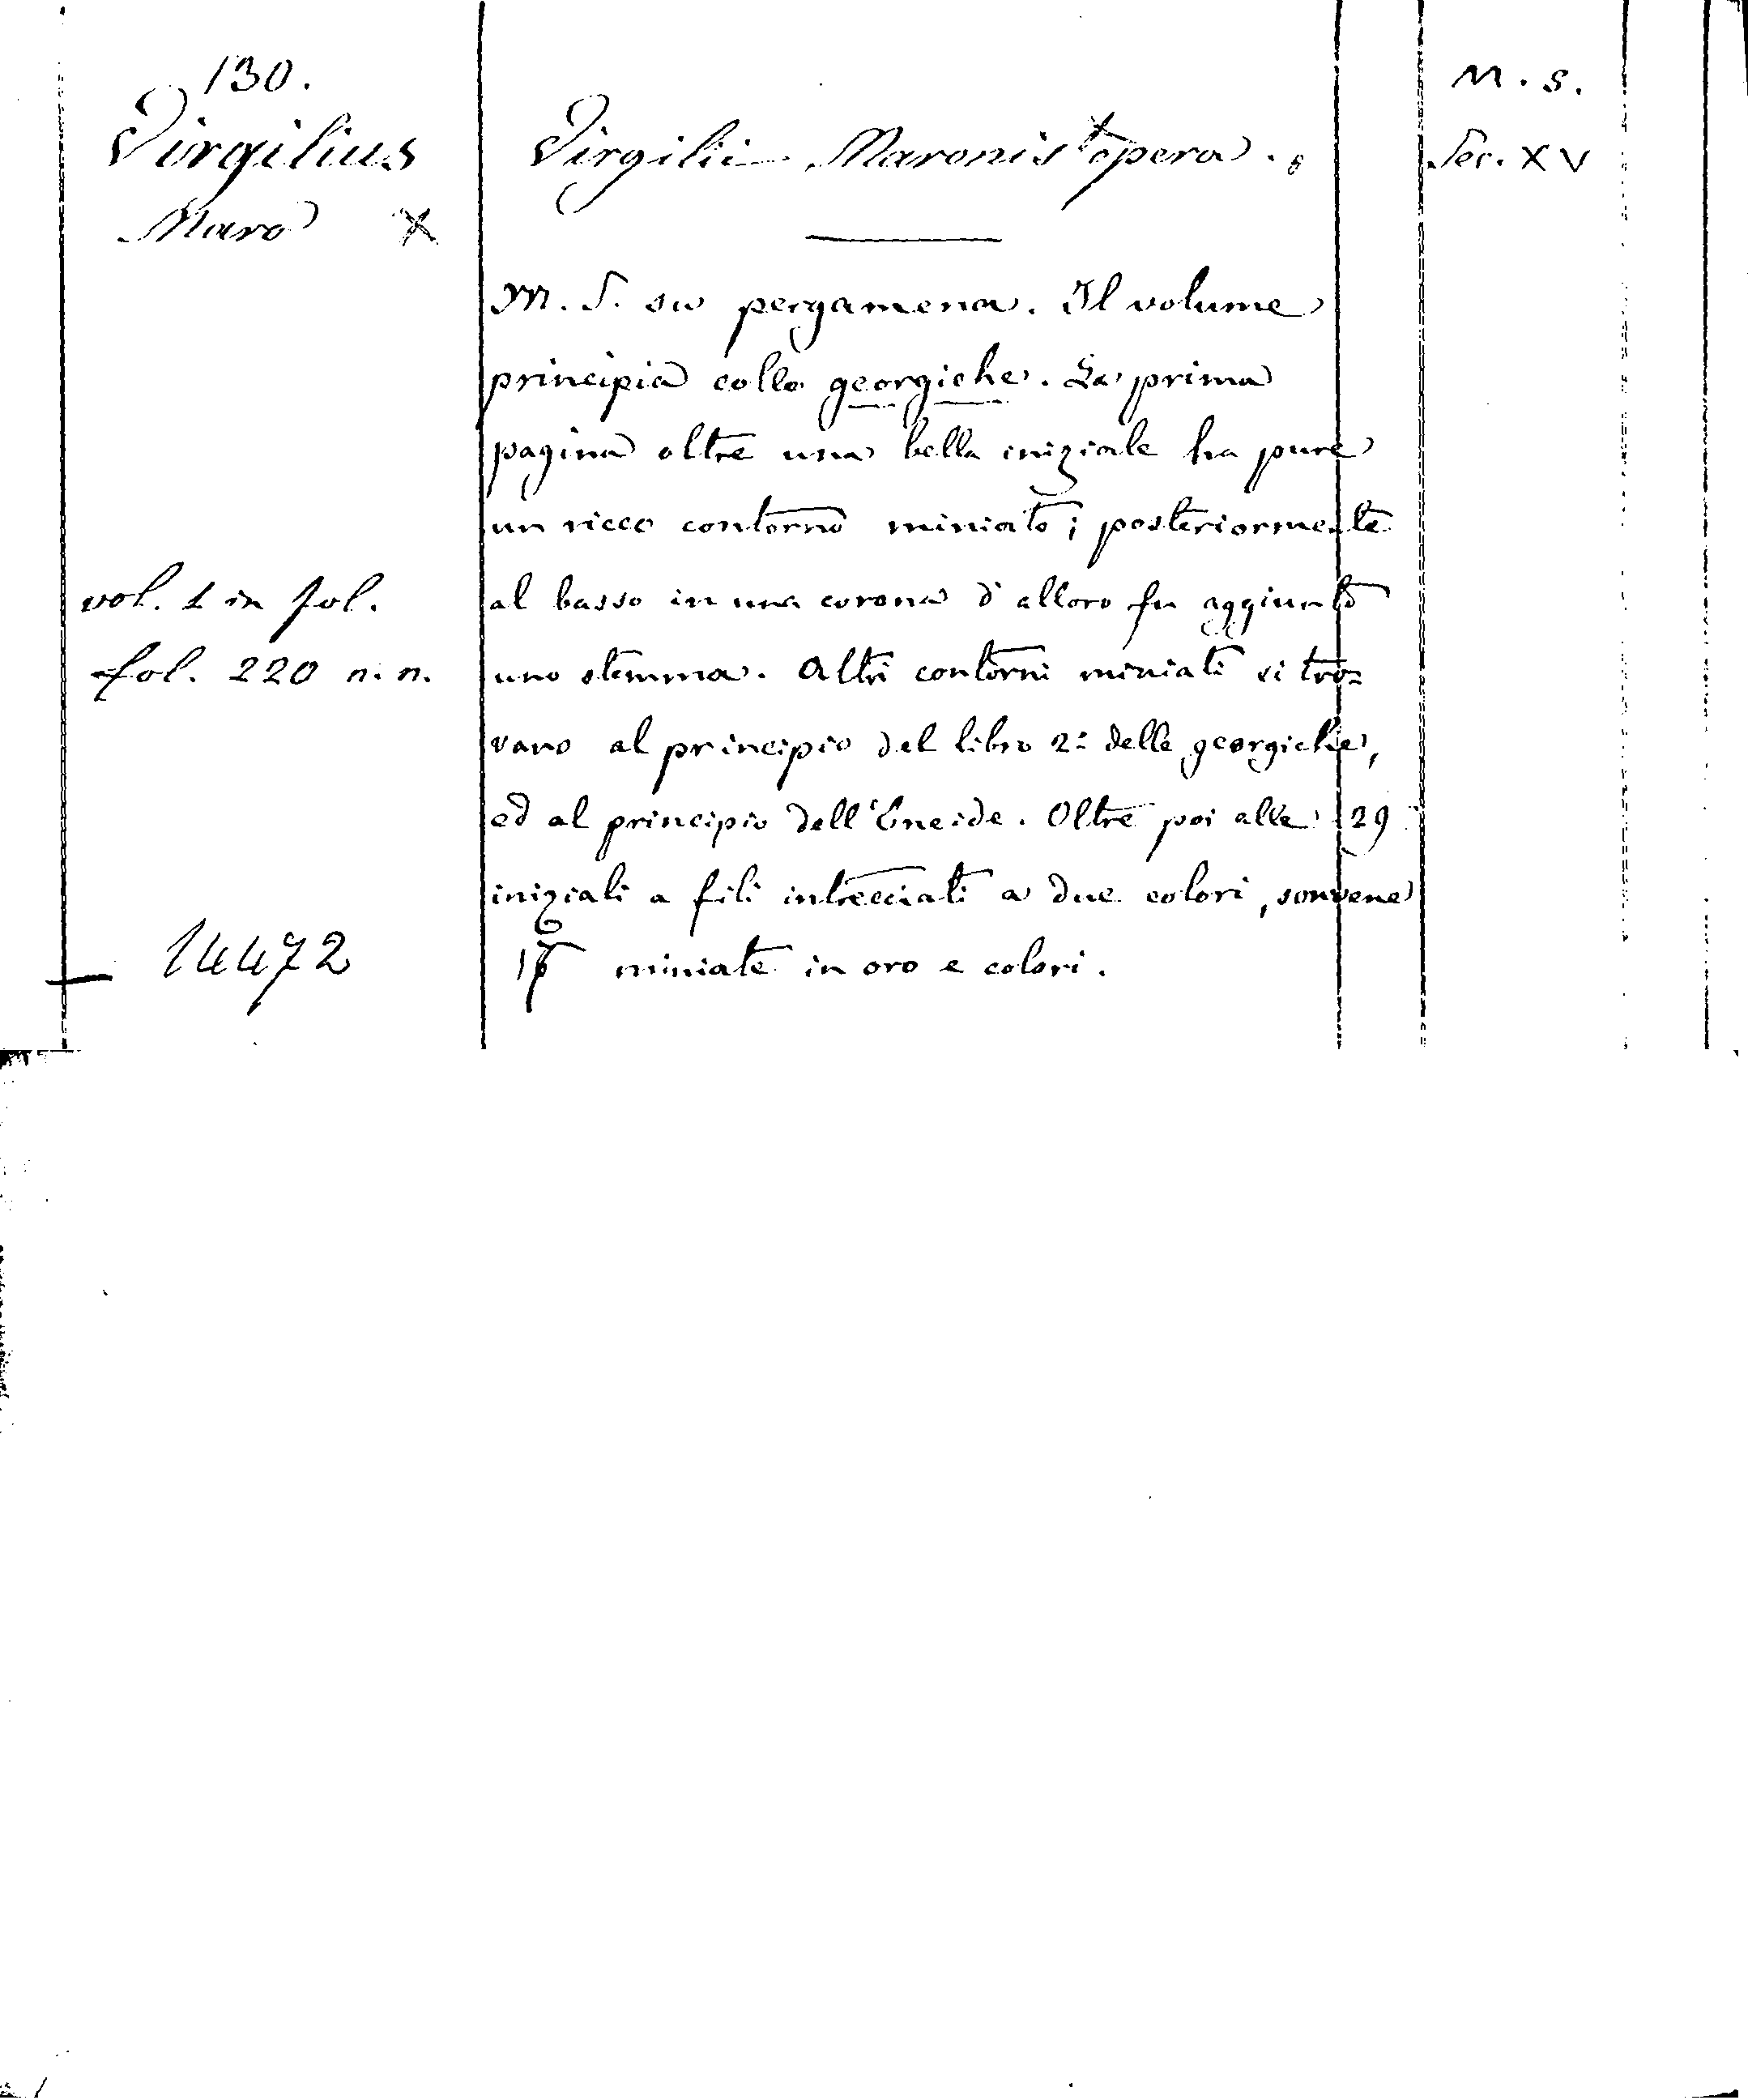 130.
Virgilius
Maro X
vol. 1 in fol.
fol. 220 n. n.
14472
Virgilii Maronis opera.
M. S. su pergamena. Il volume
principia colle georgiche. La prima
pagina oltre una bella iniziale ha pure
un ricco contorno miniato; posteriormente
al basso in una corona d'alloro fu aggiunto
uno stemma. Altri contorni miniati si tro=
vano al principio del libro 2º delle georgiche,
ed al principio dell'Eneide. Oltre poi alle 29
iniziali a fili intrecciati a due colori, sonvene
miniate in oro e colori.
M. S.
Sec. XV